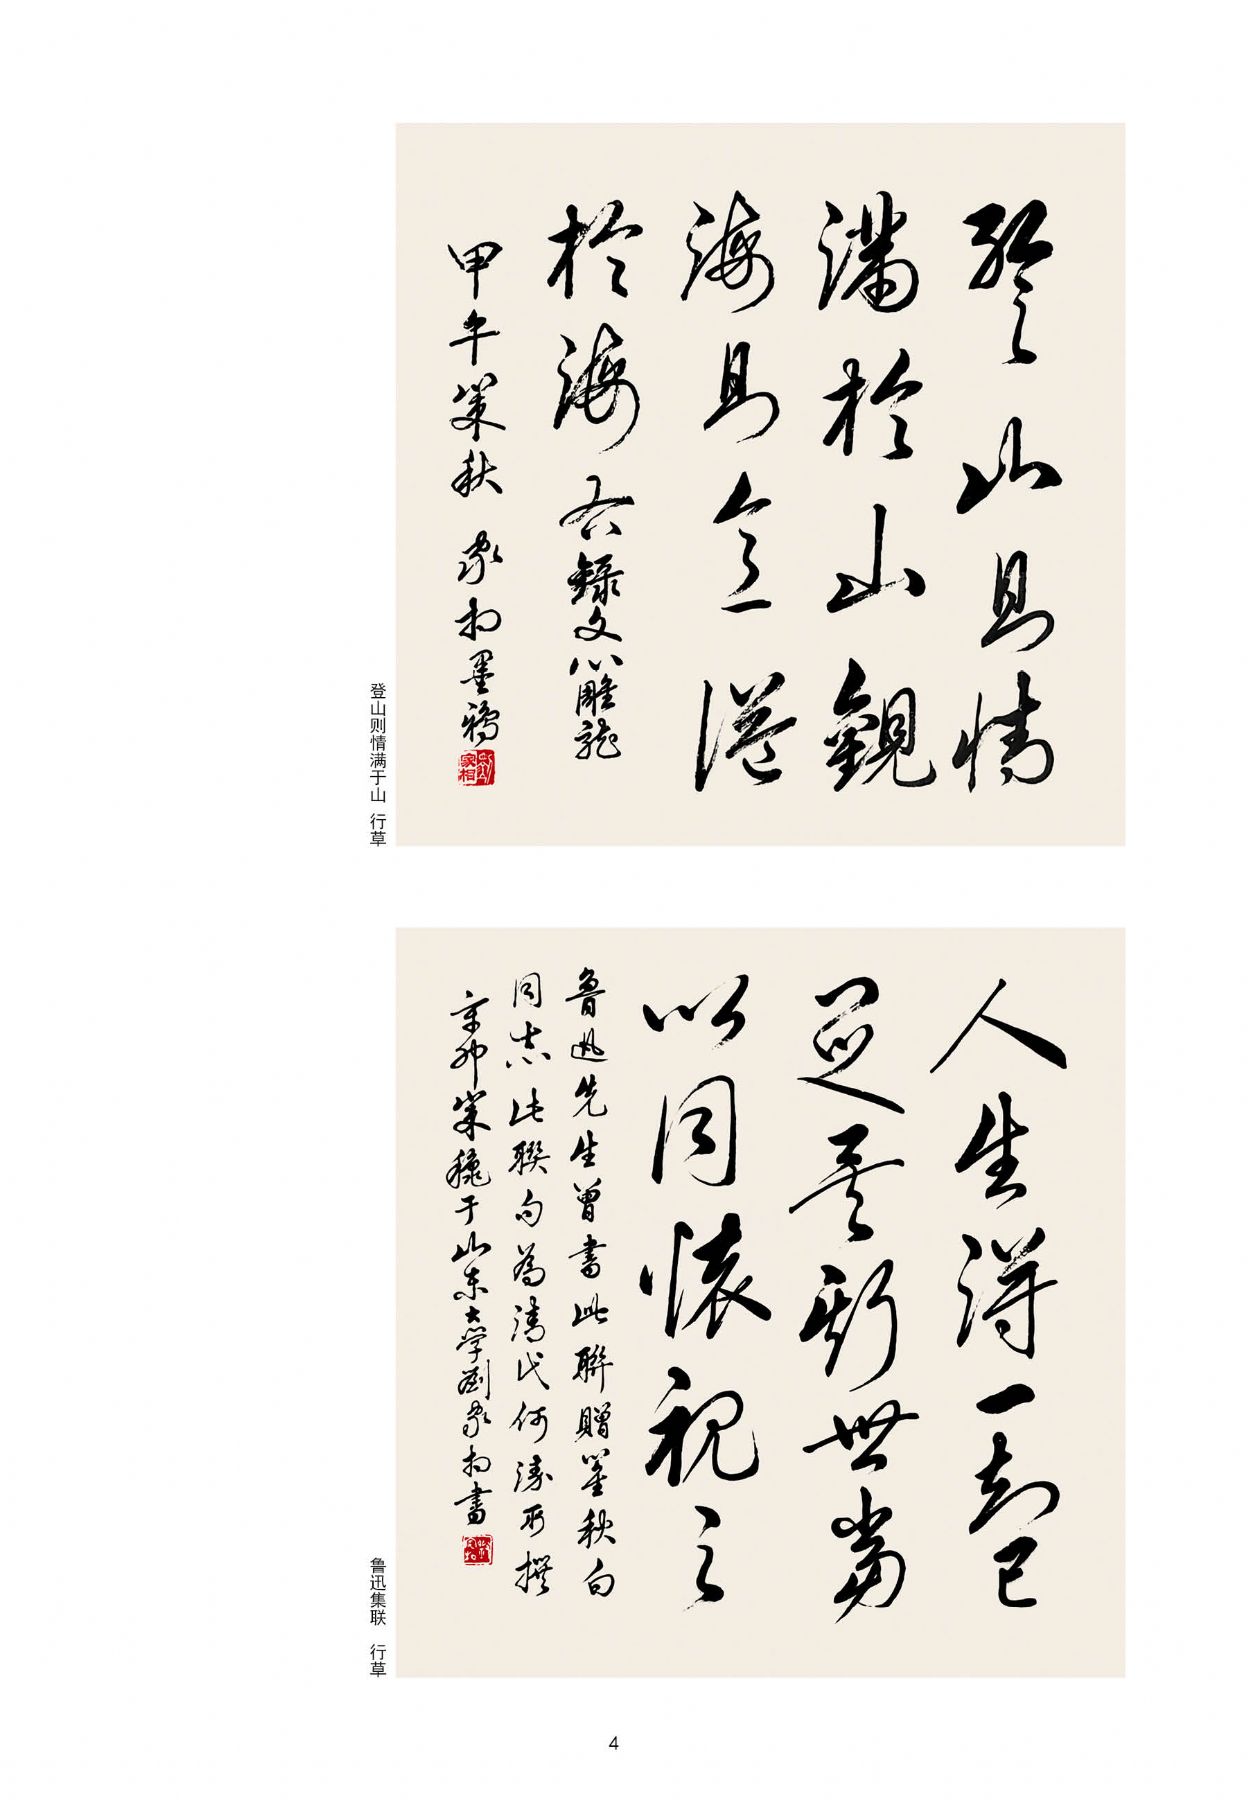 登山則情
滿於山觀
海則意溢
於海 右錄文心雕龍
甲午秋 家相墨鴉
劉家相
登山则情满于山 行草
人生得一知己
足矣斯世當
以同懷視之
魯迅先生曾書此聯贈瞿秋白
同志此聯句為清代何溱所撰
辛卯穐于山东大學劉家相書
鲁迅集联 行草
4